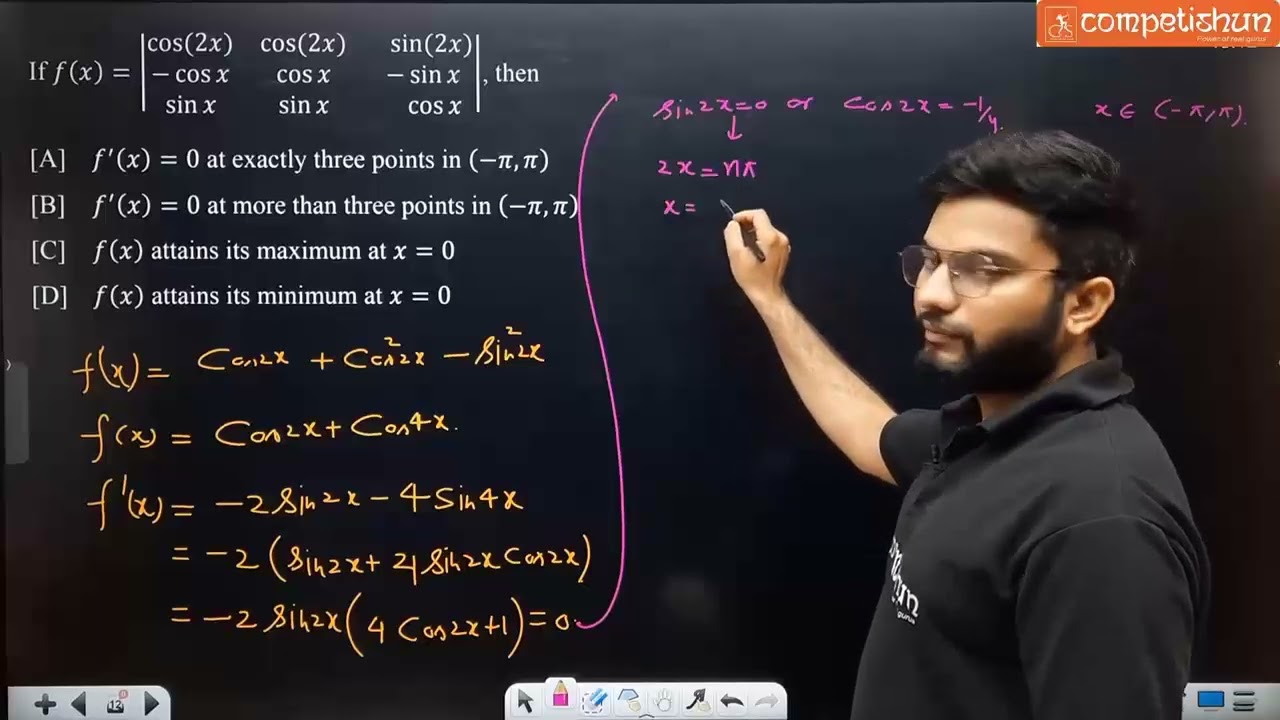 competishun
Power of real gurus
If f(x) = |cos(2x) cos(2x) sin(2x)|
|− cos x cos x − sin x|, then
|sin x sin x cos x|
[A] f′(x) = 0 at exactly three points in (−π, π)
[B] f′(x) = 0 at more than three points in (−π, π)
[C] f(x) attains its maximum at x = 0
[D] f(x) attains its minimum at x = 0
f(x) = Cos2x + Cos²2x − Sin²2x
f(x) = Cos2x + Cos4x.
f'(x) = −2 Sin2x − 4 Sin4x
= −2 (Sin2x + 4 Sin2x Cos2x)
= −2 Sin2x (4 Cos2x+1) = 0.
Sin2x=0 or Cos2x = −1/4. x ∈ (−π, π).
2x = nπ
x =
gurus
12